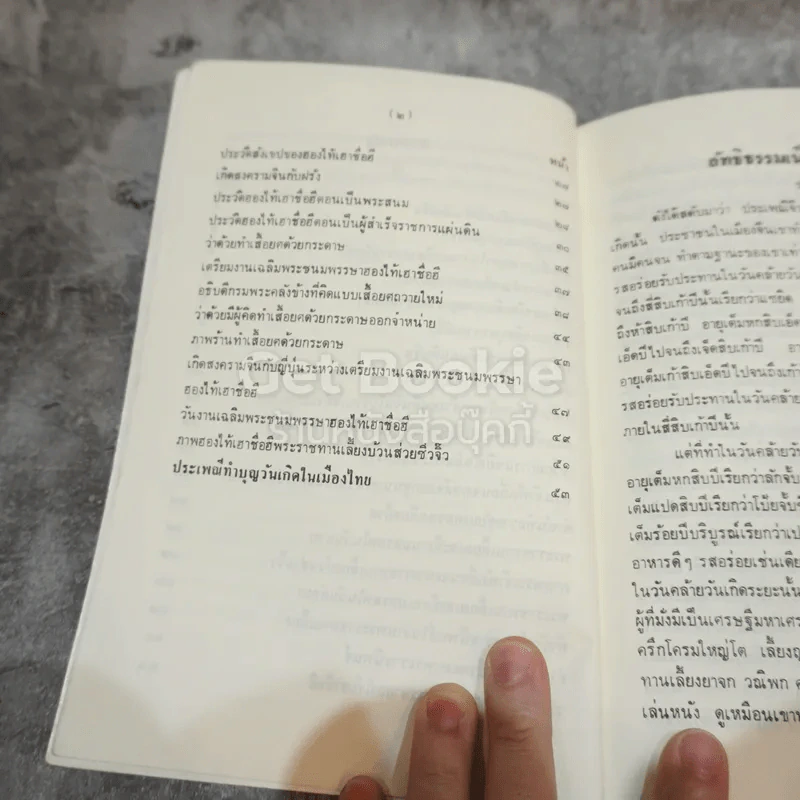 ( ๒ )
หน้า
ประวัติสังเขปของฮองไท้เฮาซื่อฮี ๑๗
เกิดสงครามจีนกับฝรั่ง ๒๗
ประวัติฮองไท้เฮาซื่อฮีตอนเป็นพระสนม ๒๘
ประวัติฮองไท้เฮาซื่อฮีตอนเป็นผู้สำเร็จราชการแผ่นดิน ๓๐
ว่าด้วยทำเสื้อยศด้วยกระดาษ ๓๕
เตรียมงานเฉลิมพระชนมพรรษาฮองไท้เฮาซื่อฮี ๓๗
อธิบดีกรมพระคลังข้างที่คิดแบบเสื้อยศถวายใหม่ ๓๘
ว่าด้วยมีผู้คิดทำเสื้อยศด้วยกระดาษออกจำหน่าย ๔๔
ภาพร้านทำเสื้อยศด้วยกระดาษ ๔๓
เกิดสงครามจีนกับญี่ปุ่นระหว่างเตรียมงานเฉลิมพระชนมพรรษา
ฮองไท้เฮาซื่อฮี ๔๗
วันงานเฉลิมพระชนมพรรษาฮองไท้เฮาซื่อฮี ๔๙
ภาพฮองไท้เฮาซื่อฮีพระราชทานเลี้ยงบ้วนส่วยซิ่วจิ๊ว ๕๑
ประเพณีทำบุญวันเกิดในเมืองไทย ๕๓
Get Bookie
ร้านหนังสือบุ๊คกี้
ลัทธิธรรมเนี
ดิก็ได้สดับมาว่า ประเพณีจี
เกิดนั้น ประชาชนในเมืองจีนเขาทำ
คนมีคนจน ทำตามฐานะของเขาเท่า
รสอร่อยรับประทานในวันคล้ายวัน
จนถึงสี่สิบเก้าปีนั้นเรียกว่าแซยิด
ถึงห้าสิบเก้าปี อายุเต็มหกสิบเอ็ด
เอ็ดปีไปจนถึงเจ็ดสิบเก้าปี
อายุเต็มเก้าสิบเอ็ดปีไปจนถึงเก้า
รสอร่อยรับประทานในวันคล้ายวัน
ภายในสี่สิบเก้าปีนั้น
แต่ที่ทำในวันคล้ายวัน
อายุเต็มหกสิบปีเรียกว่าลักจั๊บ
เต็มแปดสิบปีเรียกว่าโป้ยจั๊บ
เต็มร้อยปีบริบูรณ์เรียกว่าเป
อาหารดีๆ รสอร่อยเช่นเดีย
ในวันคล้ายวันเกิดระยะนั้น
ผู้ที่มั่งมีเป็นเศรษฐีมหาเศร
ครึกโครมใหญ่โต เลี้ยงญ
ทานเลี้ยงยาจก วณิพก
เล่นหนัง ดูเหมือนเขาท